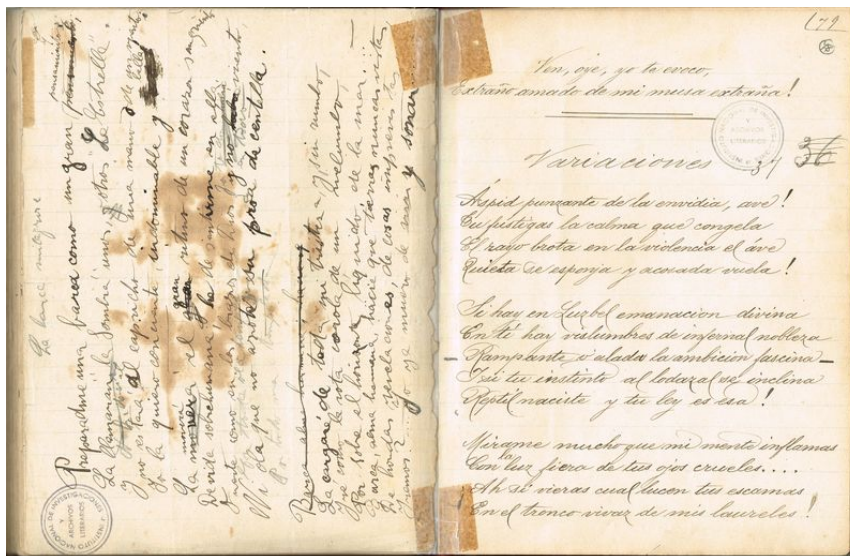 La barca milagrosa
Preparadme una barca como un gran pensamiento
La llamarán "La Sombra" unos, y otros "La Estrella".
No ha de estar al capricho de una mano ó de un viento
Yo la quiero conciente, indominable y bella!
La moverá el gran ritmo de un corazon sangriento
De vida sobrehumana; he de sentirme en ella
Fuerte como en los brazos de Dios
En todo viento
su prora de centella.
La cargaré de toda mi tristeza, y, sin rumbo,
Iré como la rota corola de un nelumbo,
Por sobre el horizonte líquido de la mar....
Barca, alma hermana, hácia que tierras nunca vistas,
De hondas revelaciones, de cosas imprevistas
Iremos?... Yo ya muero de vivir y soñar...
179
Ven, oye, yo te evoco,
Extraño amado de mi musa extraña!
Variaciones 37 36
INSTITUTO NACIONAL DE INVESTIGACIONES Y ARCHIVOS LITERARIOS
Aspid punzante de la envidia, ave!
Tu fustigas la calma que congela
El rayo brota en la violencia el ave
Quieta se esponja y acosada vuela!
Si hay en Luzbel emanacion divina
En tí hay vislumbres de infernal nobleza
Rampante ó alada la ambicion fascina
Y si tu instinto al lodazal se inclina
Reptil naciste y tu ley es esa!
Mírame mucho que mi mente inflamas
Con la luz fiera de tus ojos crueles....
Ah si vieras cual lucen tus escamas
En el tronco vivaz de mis laureles!
INSTITUTO NACIONAL DE INVESTIGACIONES Y ARCHIVOS LITERARIOS